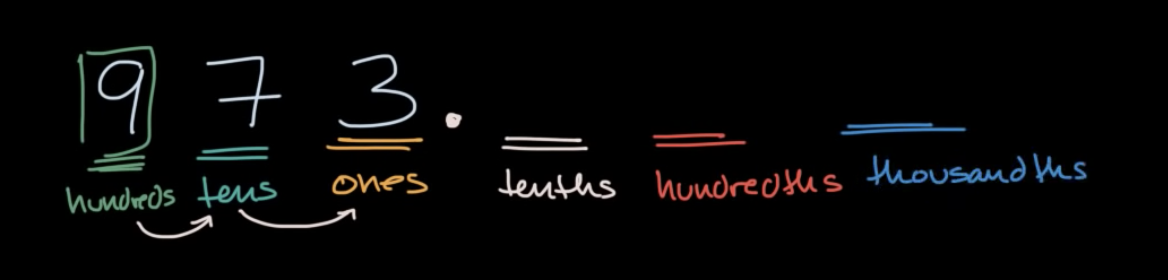 9 7 3 .
hundreds tens ones tenths hundredths thousandths